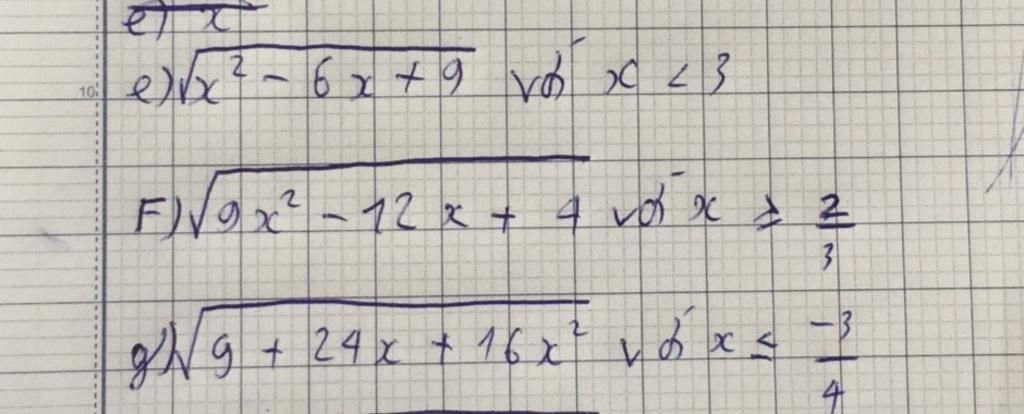 e) x
10
e) √(x² - 6x + 9) với x < 3
F) √(9x² - 12x + 4) với x ≥ 2/3
g) √(9 + 24x + 16x²) với x ≤ -3/4